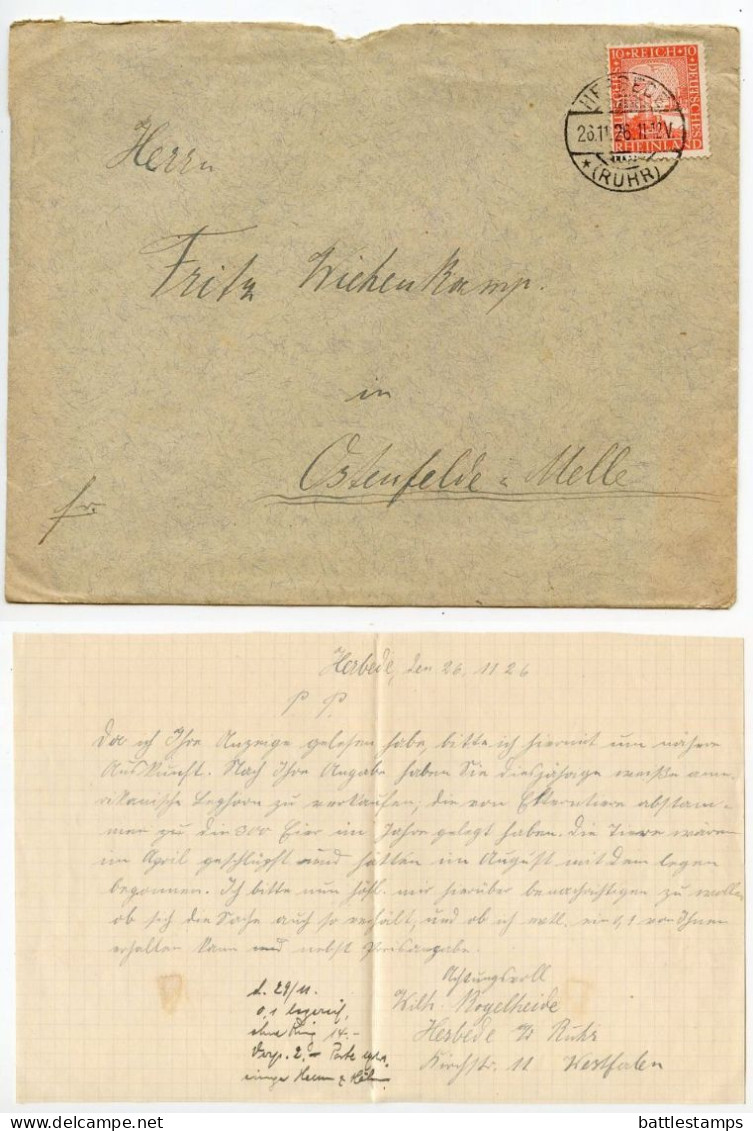 10 REICH 10
DEUTSCHES
RHEINLAND
HERBEDE
26.11.26.11-12V.
* (RUHR)
Herrn
Fritz Wiehenkamp.
in
Ostenfelde - Melle
fr.
Herbede, den 26. 11 26
P P.
Da ich Ihre Anzeige gelesen habe, bitte ich hiermit um nähere
Auskunft. Nach Ihre Angabe haben Sie diesjährige weiße ame-
rikanische Leghorn zu verkaufen, die von Elterntiere abstam-
men zu die 300 Eier im Jahre gelegt haben. Die Tiere wären
im April geschlüpft und hätten im August mit dem legen
begonnen. Ich bitte nun höfl. mir hierüber benachrichtigen zu wollen
ob sich die Sache auch so verhält, und ob ich evtl. ein 1,1 von Ihnen
erhalten kann und nebst Preisangabe.
Achtungsvoll
Wilh. Vogelheide
Herbede a/d Ruhr
Kirchstr. 11 Westfalen
d. 29/11.
0,1 legereif,
ohne Ring 14.-
Verp. 2.- Porto
einige Hennen
battlestamps